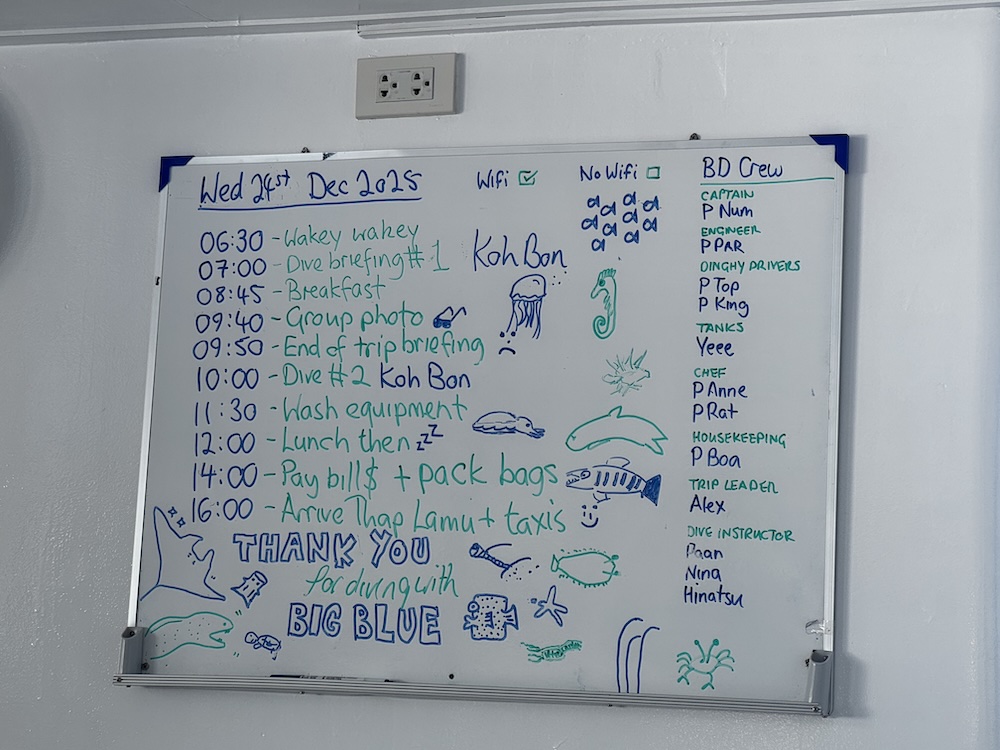 Wed 24st Dec 2025
Wifi ☑
No Wifi ☐
06:30 - Wakey wakey
07:00 - Dive briefing #1 Koh Bon
08:45 - Breakfast
09:40 - Group photo
09:50 - End of trip briefing
10:00 - Dive #2 Koh Bon
11:30 - Wash equipment
12:00 - Lunch then zzz
14:00 - Pay bill$ + pack bags
16:00 - Arrive Thap Lamu + taxis
THANK YOU
for diving with
BIG BLUE
BD Crew
CAPTAIN
P Num
ENGINEER
P PAR
DINGHY DRIVERS
P Top
P King
TANKS
Yeee
CHEF
P Anne
P Rat
HOUSEKEEPING
P Boa
TRIP LEADER
Alex
DIVE INSTRUCTOR
Paan
Nina
Hinatsu